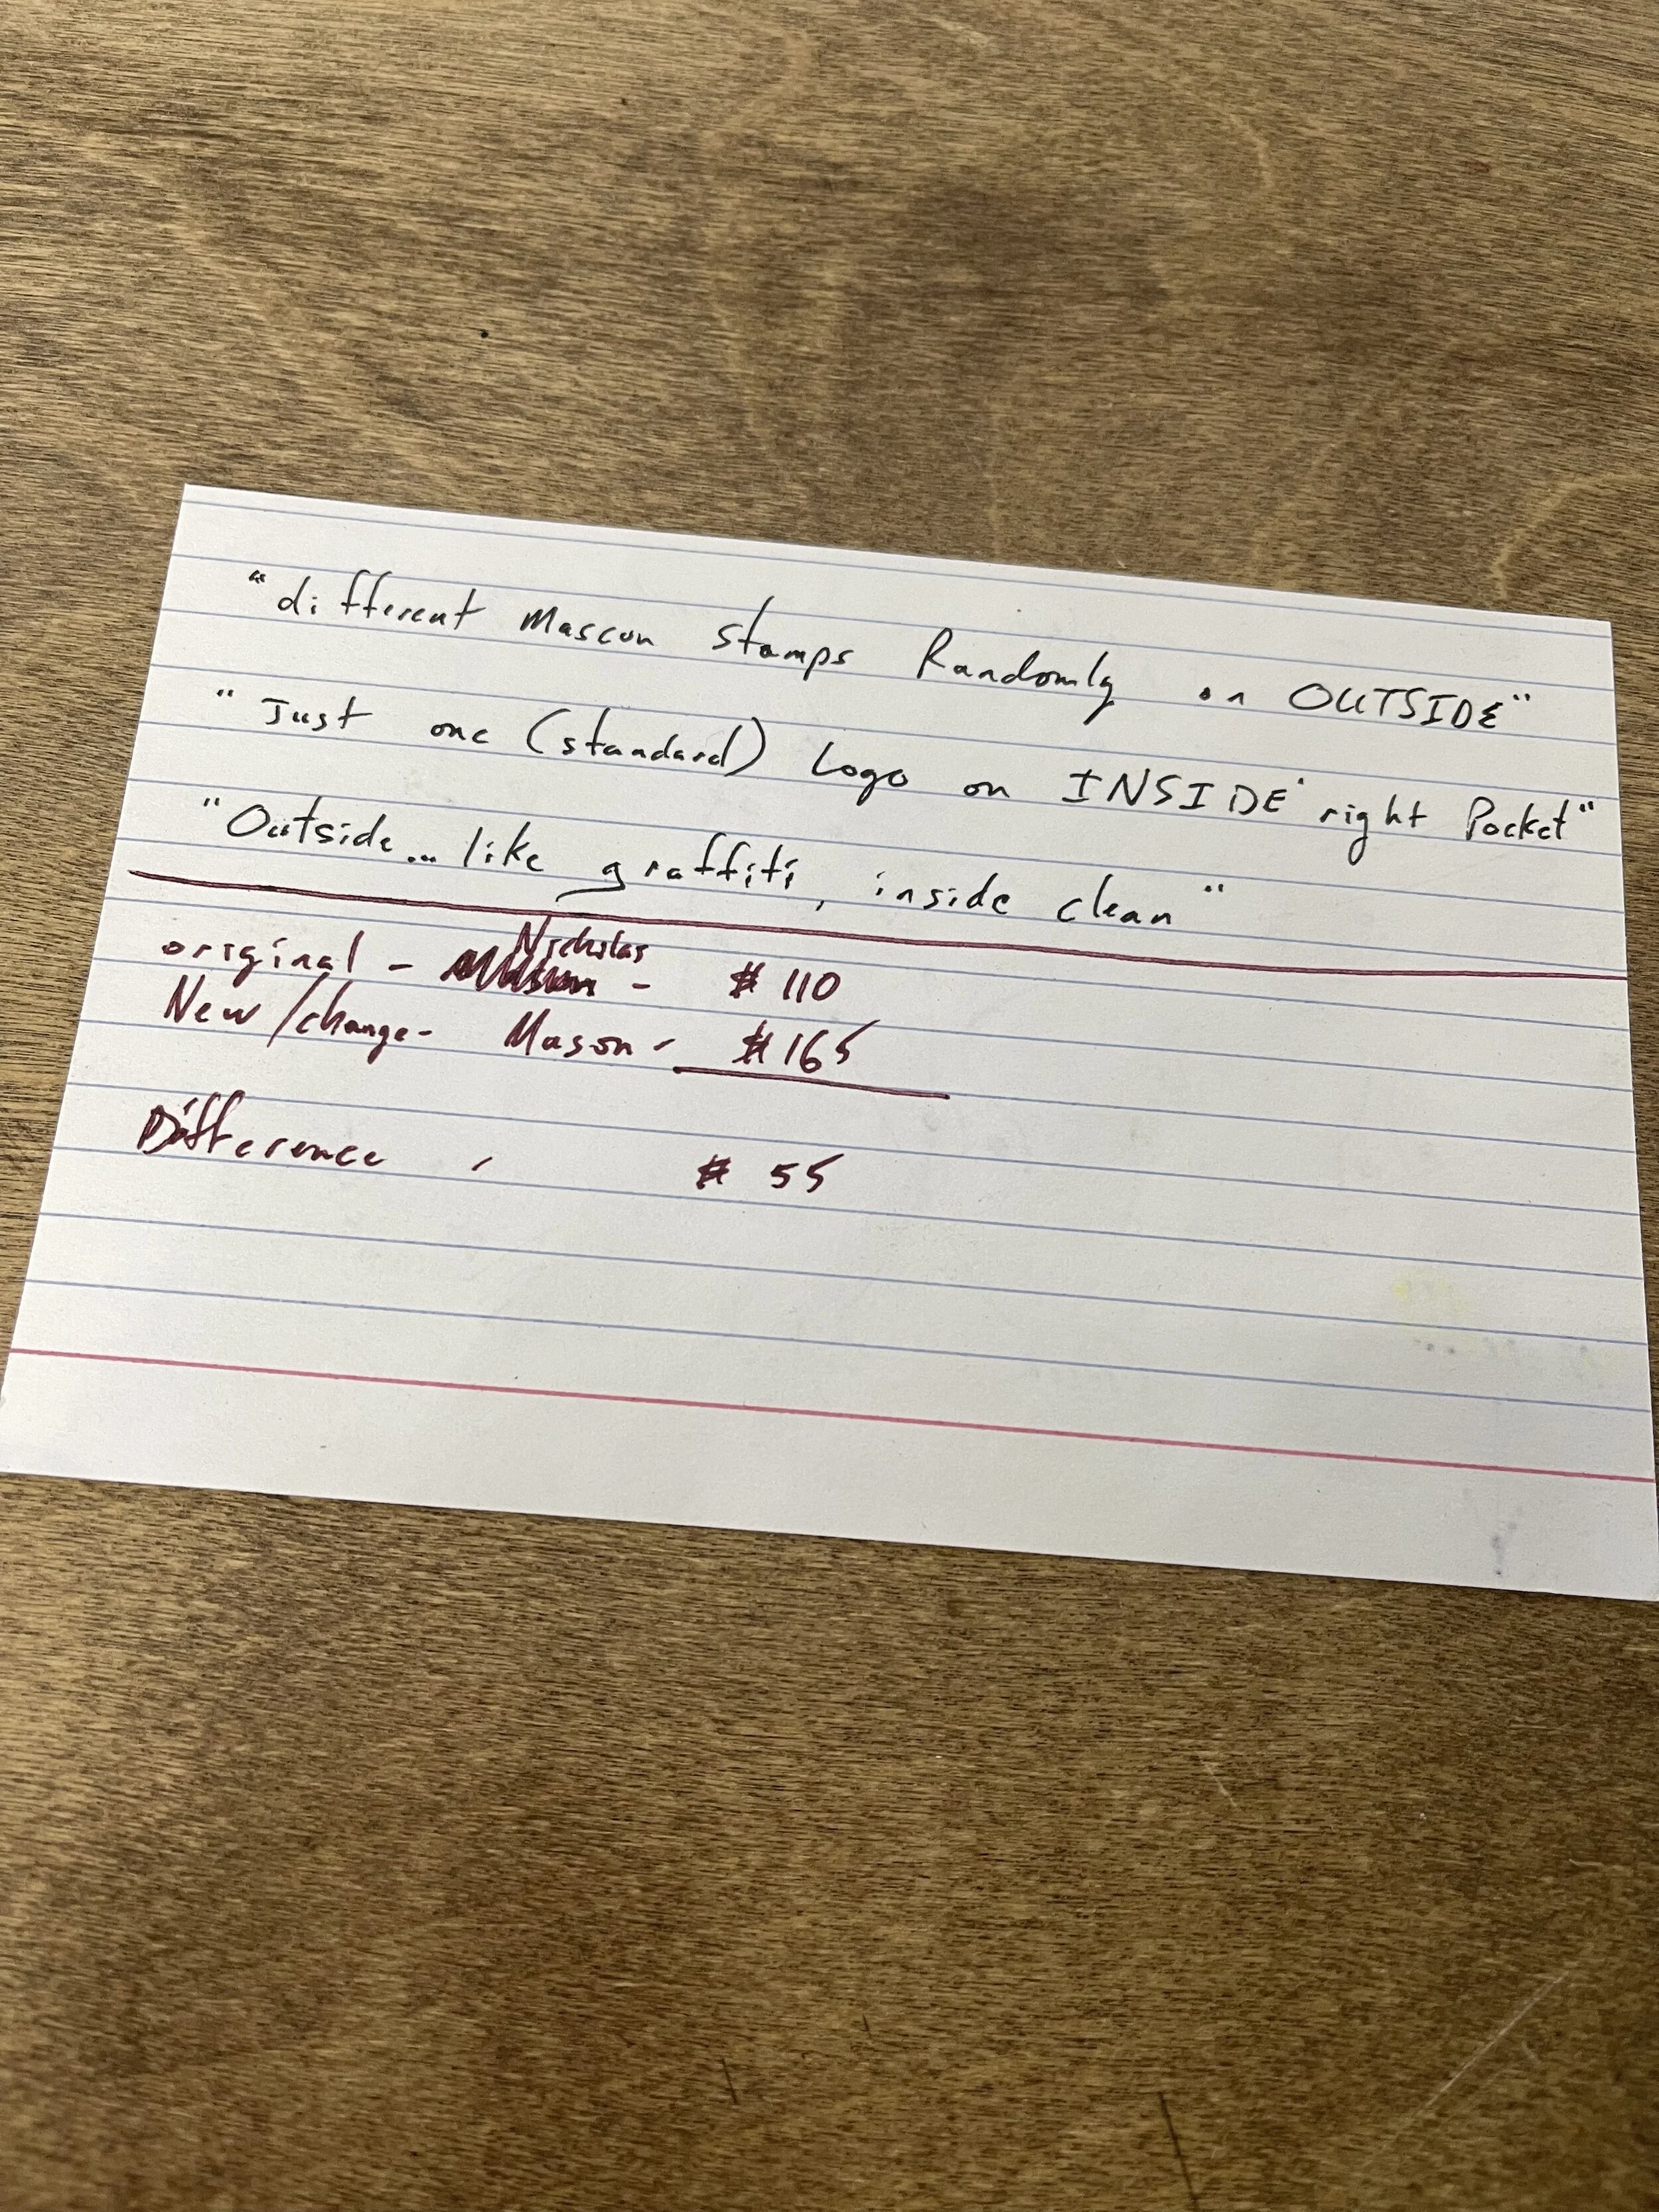 "different Mascon stamps Randomly on OUTSIDE"
"Just one (standard) Logo on INSIDE right Pocket"
"Outside... like graffiti, inside clean"
Nicholas
original - - $110
New/change- Mason - $165
Difference - $55